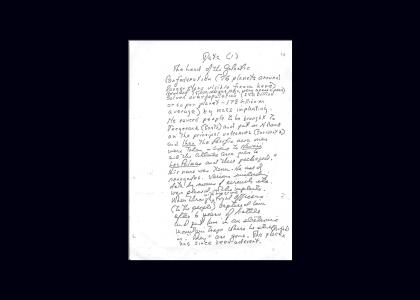 Data (1)
The head of the Galactic
Confederation (76 planets around
larger stars visible from here)
(founded 95,000,000 yrs ago, very space opera)
solved overpopulation (250 billion
or so per planet - 178 billion on
average) by mass implanting.
He caused people to be brought to
Teegeeack (Earth) and put an H Bomb
on the principal volcanoes (Incident 2)
and then the Pacific area ones
were taken in boxes to Hawaii
and the Atlantic Area ones to
Las Palmas and there "packaged."
His name was Xenu. He used
renegades. Various misleading
data by means of circuits etc.
was placed in the implants.
When through Loyal Officers
(to the people) captured him
after 6 years of battle
and put him in an electronic
mountain trap where he still
is. "They" are gone. The place
has since been a desert.